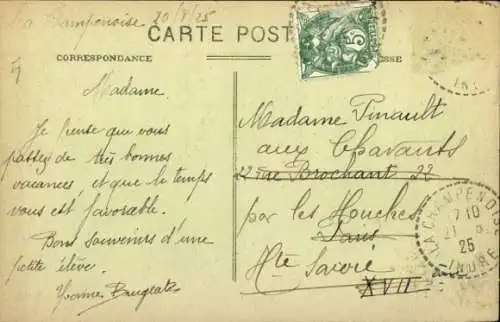 La Champenoise 20/8/25
CARTE POST
CORRESPONDANCE
ESSE
5
Madame
Je pense que vous
passez de très bonnes
vacances, et que le temps
vous est favorable.
Bons souvenirs d'une
petite élève.
Yvonne
Madame Pinault
aux Chavants
22 rue Brochant 22
par les Houches
Paris
Hte Savoie
XVII
LA CHAMPENOISE
17 10
21
25
INDRE